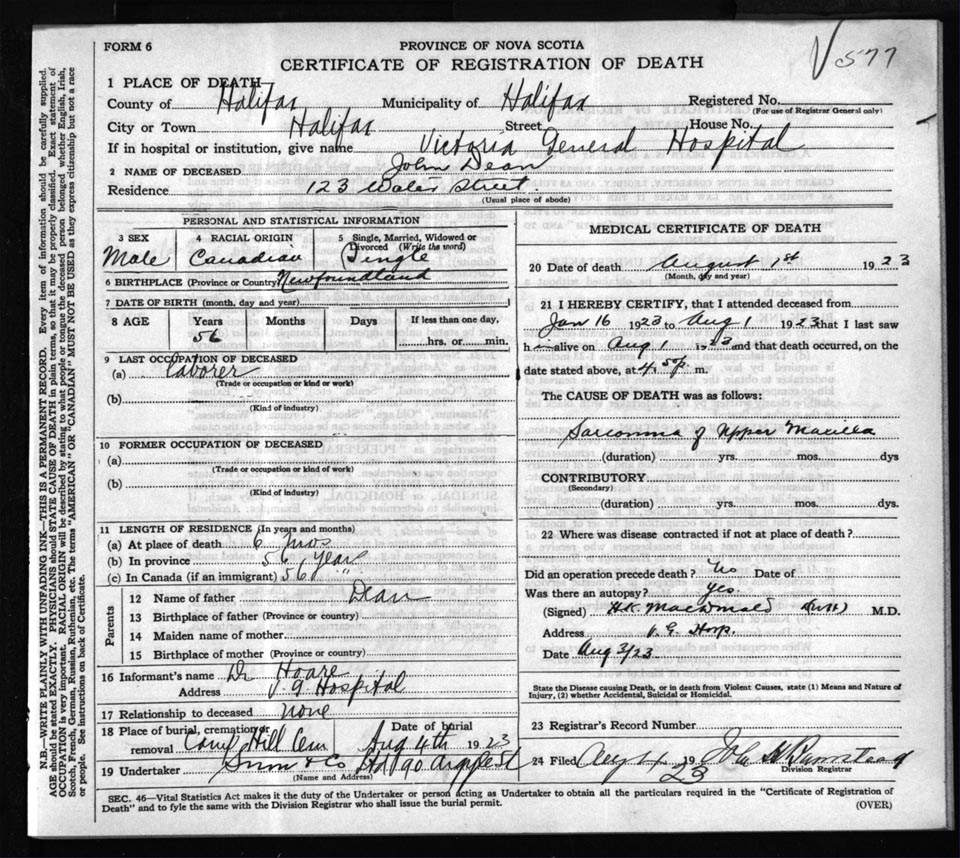 577
FORM 6
PROVINCE OF NOVA SCOTIA
CERTIFICATE OF REGISTRATION OF DEATH
1 PLACE OF DEATH
County of Halifax Municipality of Halifax Registered No.
(For use of Registrar General only)
City or Town Halifax Street House No.
If in hospital or institution, give name Victoria General Hospital
2 NAME OF DECEASED John Dean
Residence 123 Water Street.
(Usual place of abode)
PERSONAL AND STATISTICAL INFORMATION
3 SEX 4 RACIAL ORIGIN 5 Single, Married, Widowed or Divorced (Write the word)
Male Canadian Single
6 BIRTHPLACE (Province or Country) Newfoundland
7 DATE OF BIRTH (month, day and year) 1
8 AGE Years Months Days If less than one day,
56 hrs. or min.
9 LAST OCCUPATION OF DECEASED
(a) Laborer
(Trade or occupation or kind or work)
(b)
(Kind of industry)
10 FORMER OCCUPATION OF DECEASED
(a)
(Trade or occupation or kind or work)
(b)
(Kind of industry)
11 LENGTH OF RESIDENCE (In years and months)
(a) At place of death 6 mos
(b) In province 56 Years
(c) In Canada (if an immigrant) 56 "
Parents
12 Name of father Dean
13 Birthplace of father (Province or country)
14 Maiden name of mother
15 Birthplace of mother (Province or country)
16 Informant's name Dr Hoare
Address V. G Hospital
17 Relationship to deceased none
18 Place of burial, cremation or removal Camp Hill Cem Date of burial Aug 4th 1923
19 Undertaker Snow & Co Ltd 90 Argyle St
(Name and Address)
MEDICAL CERTIFICATE OF DEATH
20 Date of death August 1st 1923
(Month, day and year)
21 I HEREBY CERTIFY, that I attended deceased from
Jan 16 1923 to Aug 1 1923 that I last saw
h alive on Aug 1 1923 and that death occurred, on the
date stated above, at 4.50p. m.
The CAUSE OF DEATH was as follows:
Sarcoma of Upper Maxilla
(duration) yrs. mos. dys
CONTRIBUTORY
(Secondary)
(duration) yrs. mos. dys
22 Where was disease contracted if not at place of death?
Did an operation precede death? No Date of
Was there an autopsy? Yes.
(Signed) H.K. MacDonald M.D.
Address V. G. Hosp.
Date Aug 3/23
State the Disease causing Death, or in death from Violent Causes, state (1) Means and Nature of
Injury, (2) whether Accidental, Suicidal or Homicidal.
23 Registrar's Record Number
24 Filed Aug 4 1923
Division Registrar
SEC. 46—Vital Statistics Act makes it the duty of the Undertaker or person acting as Undertaker to obtain all the particulars required in the "Certificate of Registration of
Death" and to fyle the same with the Division Registrar who shall issue the burial permit.
(OVER)
N.B.—WRITE PLAINLY WITH UNFADING INK—THIS IS A PERMANENT RECORD. Every item of information should be carefully supplied.
AGE should be stated EXACTLY. PHYSICIANS should STATE CAUSE OF DEATH in plain terms, so that it may be properly classified. Exact statement of
OCCUPATION is very important. RACIAL ORIGIN will be described by stating to what people or tongue the deceased person belonged whether English, Irish,
Scotch, French, German, Russian, Ruthenian, etc. The terms "AMERICAN" OR "CANADIAN" MUST NOT BE USED as they express citizenship but not a race
or people. See instructions on back of Certificate.